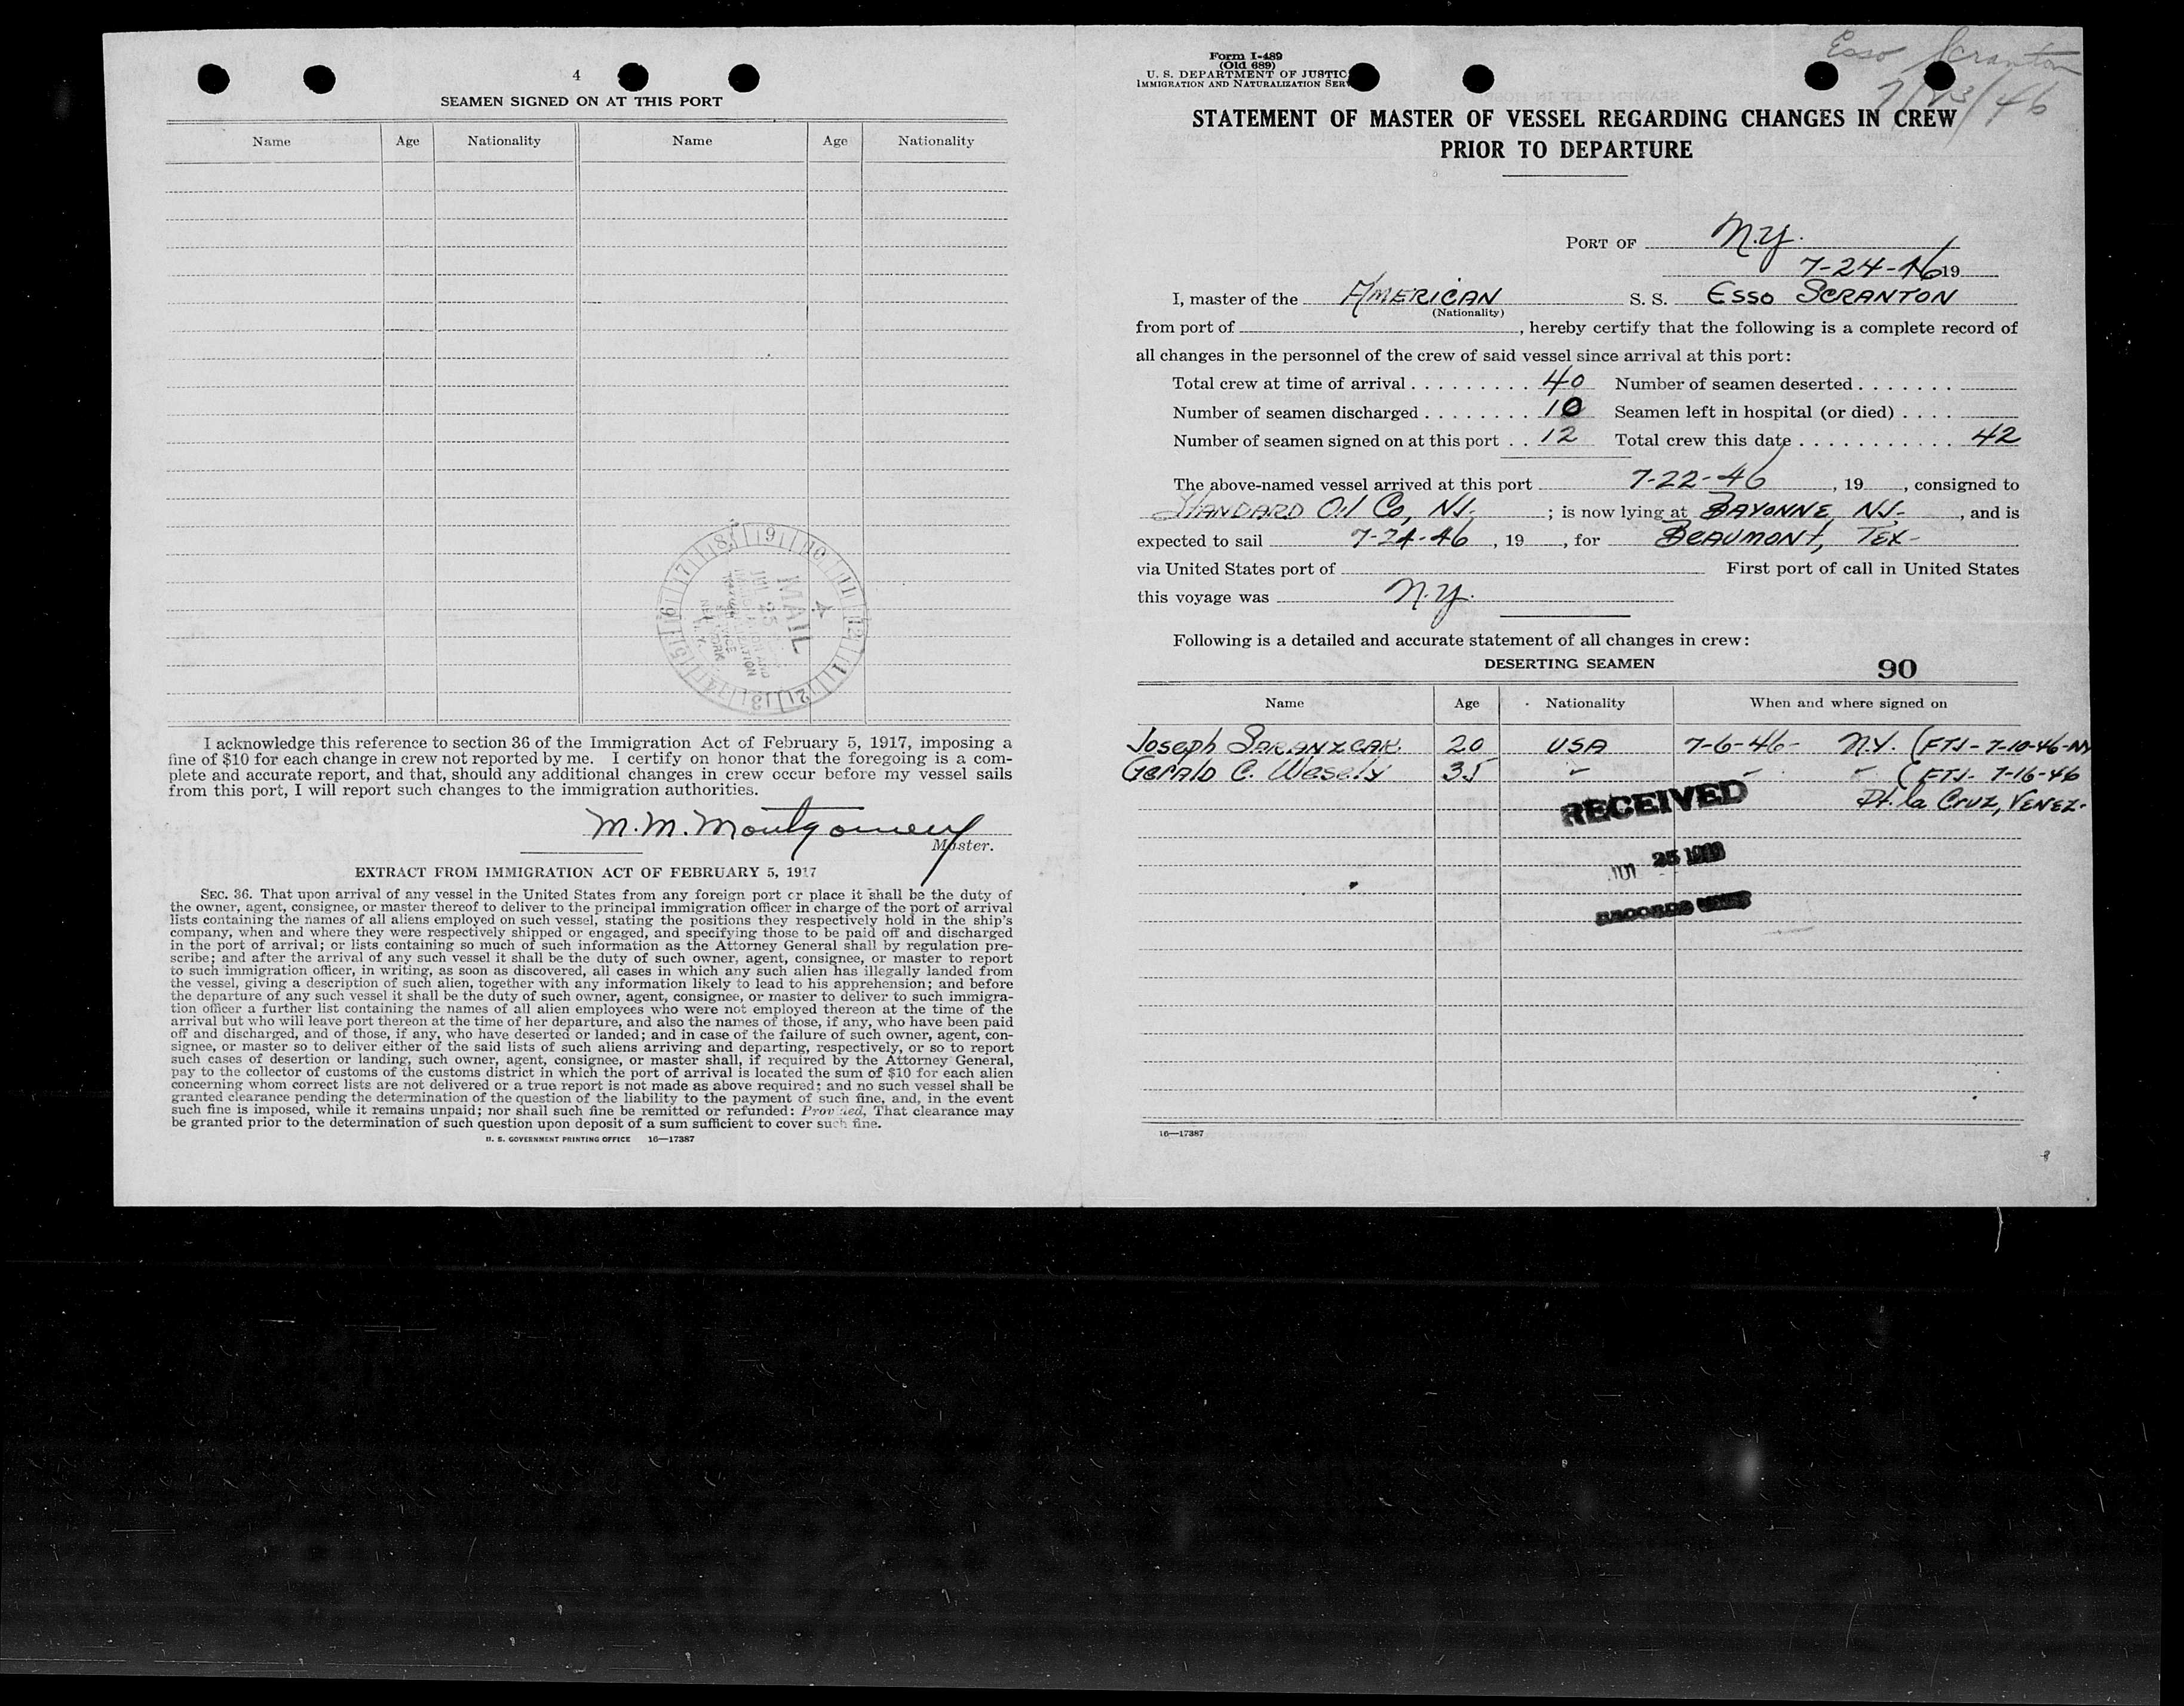 4
SEAMEN SIGNED ON AT THIS PORT
Name Age Nationality Name Age Nationality
8 9 10 11 12 1 2 3 4 5 6 7
MAIL
25
NEW YORK
I acknowledge this reference to section 36 of the Immigration Act of February 5, 1917, imposing a
fine of $10 for each change in crew not reported by me. I certify on honor that the foregoing is a com-
plete and accurate report, and that, should any additional changes in crew occur before my vessel sails
from this port, I will report such changes to the immigration authorities.
M. M. Montgomery
Master.
EXTRACT FROM IMMIGRATION ACT OF FEBRUARY 5, 1917
SEC. 36. That upon arrival of any vessel in the United States from any foreign port or place it shall be the duty of
the owner, agent, consignee, or master thereof to deliver to the principal immigration officer in charge of the port of arrival
lists containing the names of all aliens employed on such vessel, stating the positions they respectively hold in the ship's
company, when and where they were respectively shipped or engaged, and specifying those to be paid off and discharged
in the port of arrival; or lists containing so much of such information as the Attorney General shall by regulation pre-
scribe; and after the arrival of any such vessel it shall be the duty of such owner, agent, consignee, or master to report
to such immigration officer, in writing, as soon as discovered, all cases in which any such alien has illegally landed from
the vessel, giving a description of such alien, together with any information likely to lead to his apprehension; and before
the departure of any such vessel it shall be the duty of such owner, agent, consignee, or master to deliver to such immigra-
tion officer a further list containing the names of all alien employees who were not employed thereon at the time of the
arrival but who will leave port thereon at the time of her departure, and also the names of those, if any, who have been paid
off and discharged, and of those, if any, who have deserted or landed; and in case of the failure of such owner, agent, con-
signee, or master so to deliver either of the said lists of such aliens arriving and departing, respectively, or so to report
such cases of desertion or landing, such owner, agent, consignee, or master shall, if required by the Attorney General,
pay to the collector of customs of the customs district in which the port of arrival is located the sum of $10 for each alien
concerning whom correct lists are not delivered or a true report is not made as above required; and no such vessel shall be
granted clearance pending the determination of the question of the liability to the payment of such fine, and, in the event
such fine is imposed, while it remains unpaid; nor shall such fine be remitted or refunded: Provided, That clearance may
be granted prior to the determination of such question upon deposit of a sum sufficient to cover such fine.
U. S. GOVERNMENT PRINTING OFFICE 16—17387
Form I-489
(Old 689)
U. S. DEPARTMENT OF JUSTIC
IMMIGRATION AND NATURALIZATION SER
Esso Scranton
7/23/46
STATEMENT OF MASTER OF VESSEL REGARDING CHANGES IN CREW
PRIOR TO DEPARTURE
PORT OF N.Y.
7-24-46 19
I, master of the AMERICAN S. S. ESSO SCRANTON
(Nationality)
from port of , hereby certify that the following is a complete record of
all changes in the personnel of the crew of said vessel since arrival at this port:
Total crew at time of arrival . . . . . . . . . 40 Number of seamen deserted . . . . . . .
Number of seamen discharged . . . . . . . . 10 Seamen left in hospital (or died) . . . .
Number of seamen signed on at this port . . 12 Total crew this date . . . . . . . . . . . . 42
The above-named vessel arrived at this port 7-22-46 , 19 , consigned to
STANDARD Oil Co, NJ. ; is now lying at BAYONNE, NJ- , and is
expected to sail 7-24-46 , 19 , for BEAUMONT, TEX-
via United States port of First port of call in United States
this voyage was N.Y.
Following is a detailed and accurate statement of all changes in crew:
DESERTING SEAMEN 90
Name Age Nationality When and where signed on
Joseph 20 USA 7-6-46- N.Y. (FTJ- 7-10-46-NY
Gerald C. Wesely 35 " " " (FTJ- 7-16-46
Pt. la Cruz, VENEZ.
RECEIVED
25
RECORDS
16—17387